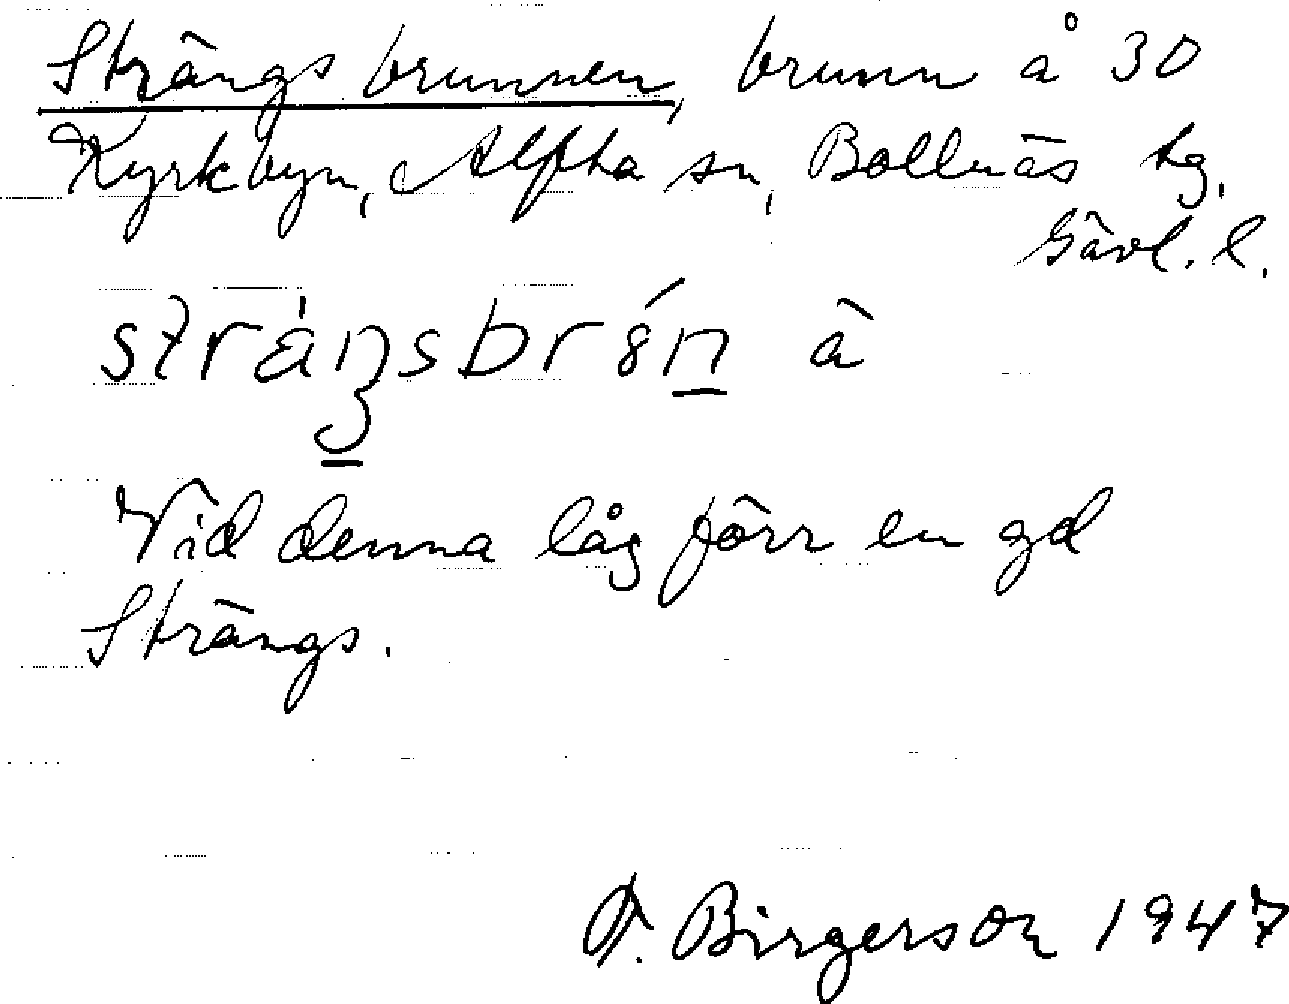 Strängsbrunnen, brunn å 30
Kyrkbyn, Alfta sn, Bollnäs tg,
Gävl. l.
stráŋsbrśn â
Vid denna låg förr en gd
Strängs.
F. Birgerson 1947